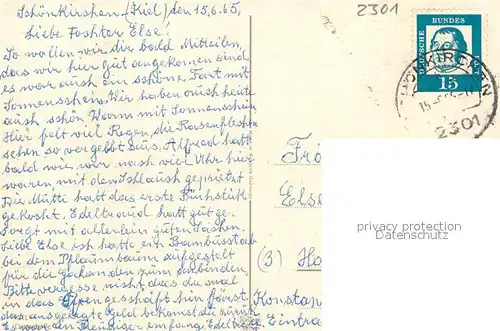 Schönkirchen/(Kiel) den 15.6.65,
2301
Liebe Else!
So wollen wir dir bald Mitteilen,
das wir hier gut angekommen sind
es war auch ein schöne Fart mit
Sonnenschein. Wir haben auch heute
auch schön Warm mit Sonnenschein
Hier felt viel Regen, die Rasenflechen
sehen so vergelbt aus. Alfred hatt
bald wie wir nach vier Uhr hier
waren, mit den Schlauch gespritzt
Die Mütte hatt das erste Frühstük
gekocht. Edeltraud hatt gütge-
sorgt mit allerlein guten Sachen.
Liebe Else ich hatte ein Bambusstab
bei dem Pflaumbaum aufgestelt
für die zum anbinden,
Bitte vergesse nicht das du mal
in das geschäft hin först.
das Geld bekomst zurück
DEUTSCHE BUNDESPOST
15
SCHÖNKIRCHEN
2301
Frö
Else
(3) Ha
Konstan
privacy protection
Datenschutz